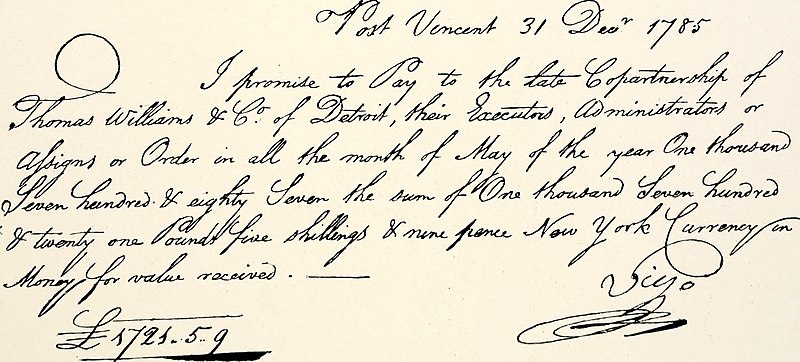 Post Vincent 31 Decr 1785
I promise to Pay to the late Copartnership of
Thomas Williams & Co. of Detroit, their Executors, Administrators or
Assigns or Order in all the month of May of the year One thousand
Seven hundred & eighty Seven the sum of One thousand Seven hundred
& twenty one Pounds five shillings & nine pence New York Currency in
Money for value received.
Vigo
£1721.5.9